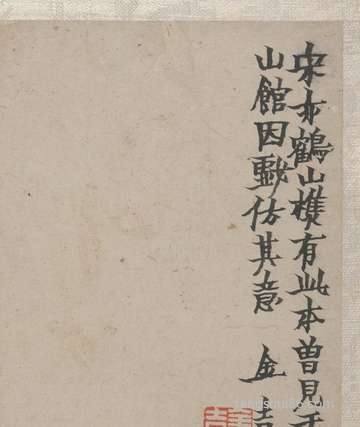 宋鶴山樵有此本曾見
山館因戲仿其意 金吉